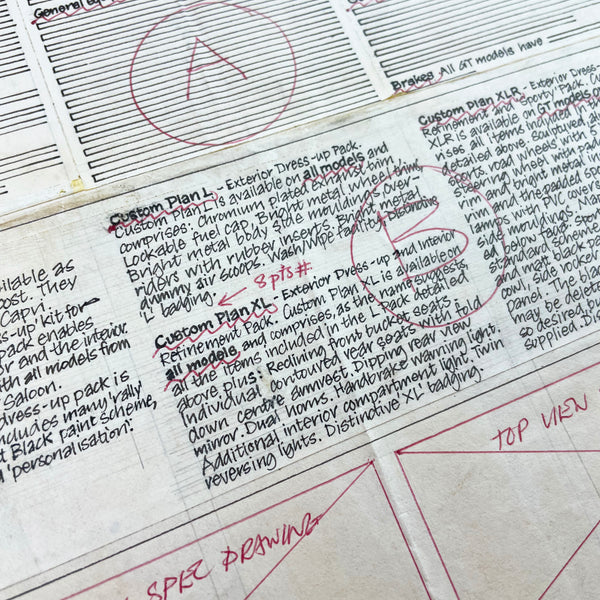 General
A
Brakes All GT models have
as
They
Capri
kit for
pack enables
and the interior
all models from
Saloon.
dress-up pack is
many 'rally
Black paint scheme,
'personalisation'.
Custom Plan L - Exterior Dress-up Pack.
Custom Plan L is available on all models and
comprises: Chromium plated exhaust trim.
Lockable fuel cap. Bright metal wheel trims.
Bright metal body side mouldings. Over-
riders with rubber inserts. Bright metal
dummy air scoops. Wash/Wipe facility. Distinctive
'L' badging.
8 pts #
B
Custom Plan XL - Exterior Dress-up and interior
Refinement Pack. Custom Plan XL is available on
all models and comprises, as the name suggests,
all the items included in the L pack detailed
above, plus: Reclining front bucket seats.
Individual contoured rear seats with fold
down centre armrest. Dipping rear view
mirror. Dual horns. Handbrake warning light.
Additional interior compartment light. Twin
reversing lights. Distinctive 'XL' badging.
Custom Plan XLR - Exterior Dress-
Refinement and 'Sporty' Pack.
XLR is available on GT models
all items included
detailed above. Sculptured
sports road wheels with
steering wheel with
and bright metal
rim and the padded
with PVC
side mouldings.
below,
standard scheme
and matt black
cowl, side
panel. The
may be deleted
so desired.
supplied.
SPEC DRAWING
TOP VIEW